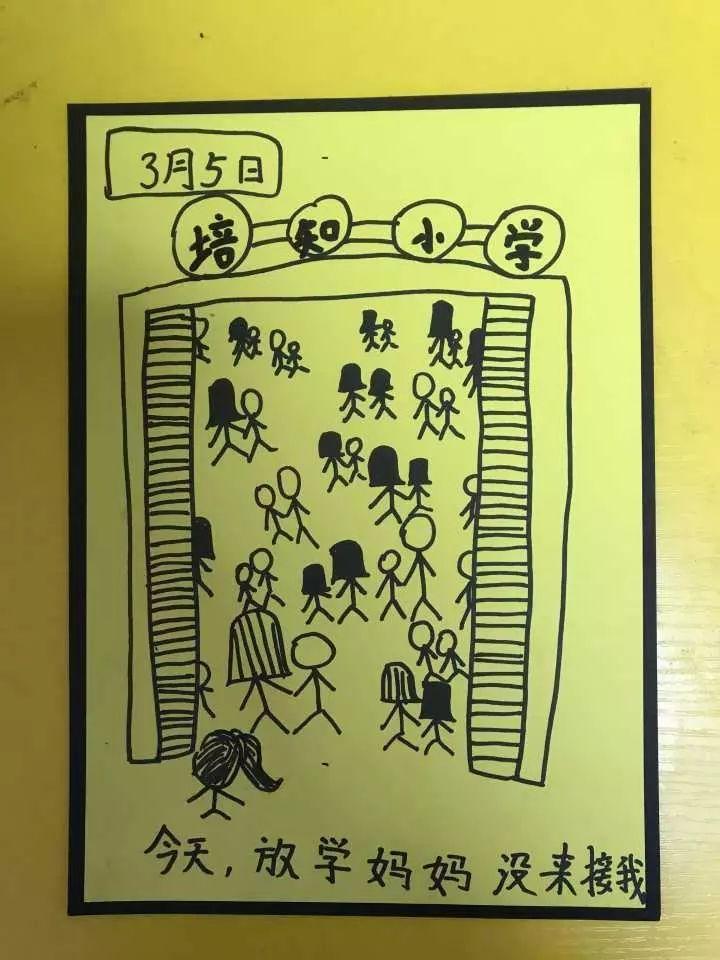 3月5日
培知小学
今天，放学妈妈没来接我